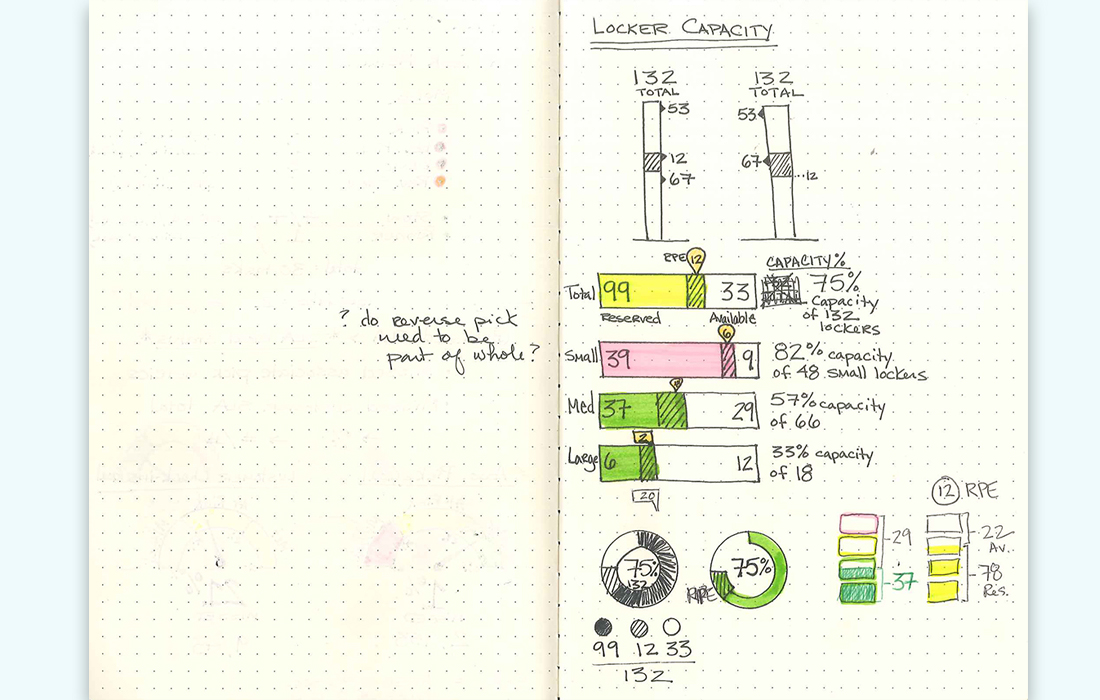 ? do reverse pick
need to be
part of whole?
LOCKER CAPACITY
132
TOTAL
53
12
67
132
TOTAL
53
67
12
RPE 12
CAPACITY%
Total 99 33 75%
Capacity
of 132
lockers
Reserved Available
6
Small 39 9 82% capacity
of 48 small lockers
Med 37 29 57% capacity
of 66
2
Large 6 12 33% capacity
of 18
20
75%
132
75%
RPE
99 12 33
132
12 RPE
29
37
22
Av.
78
Res.